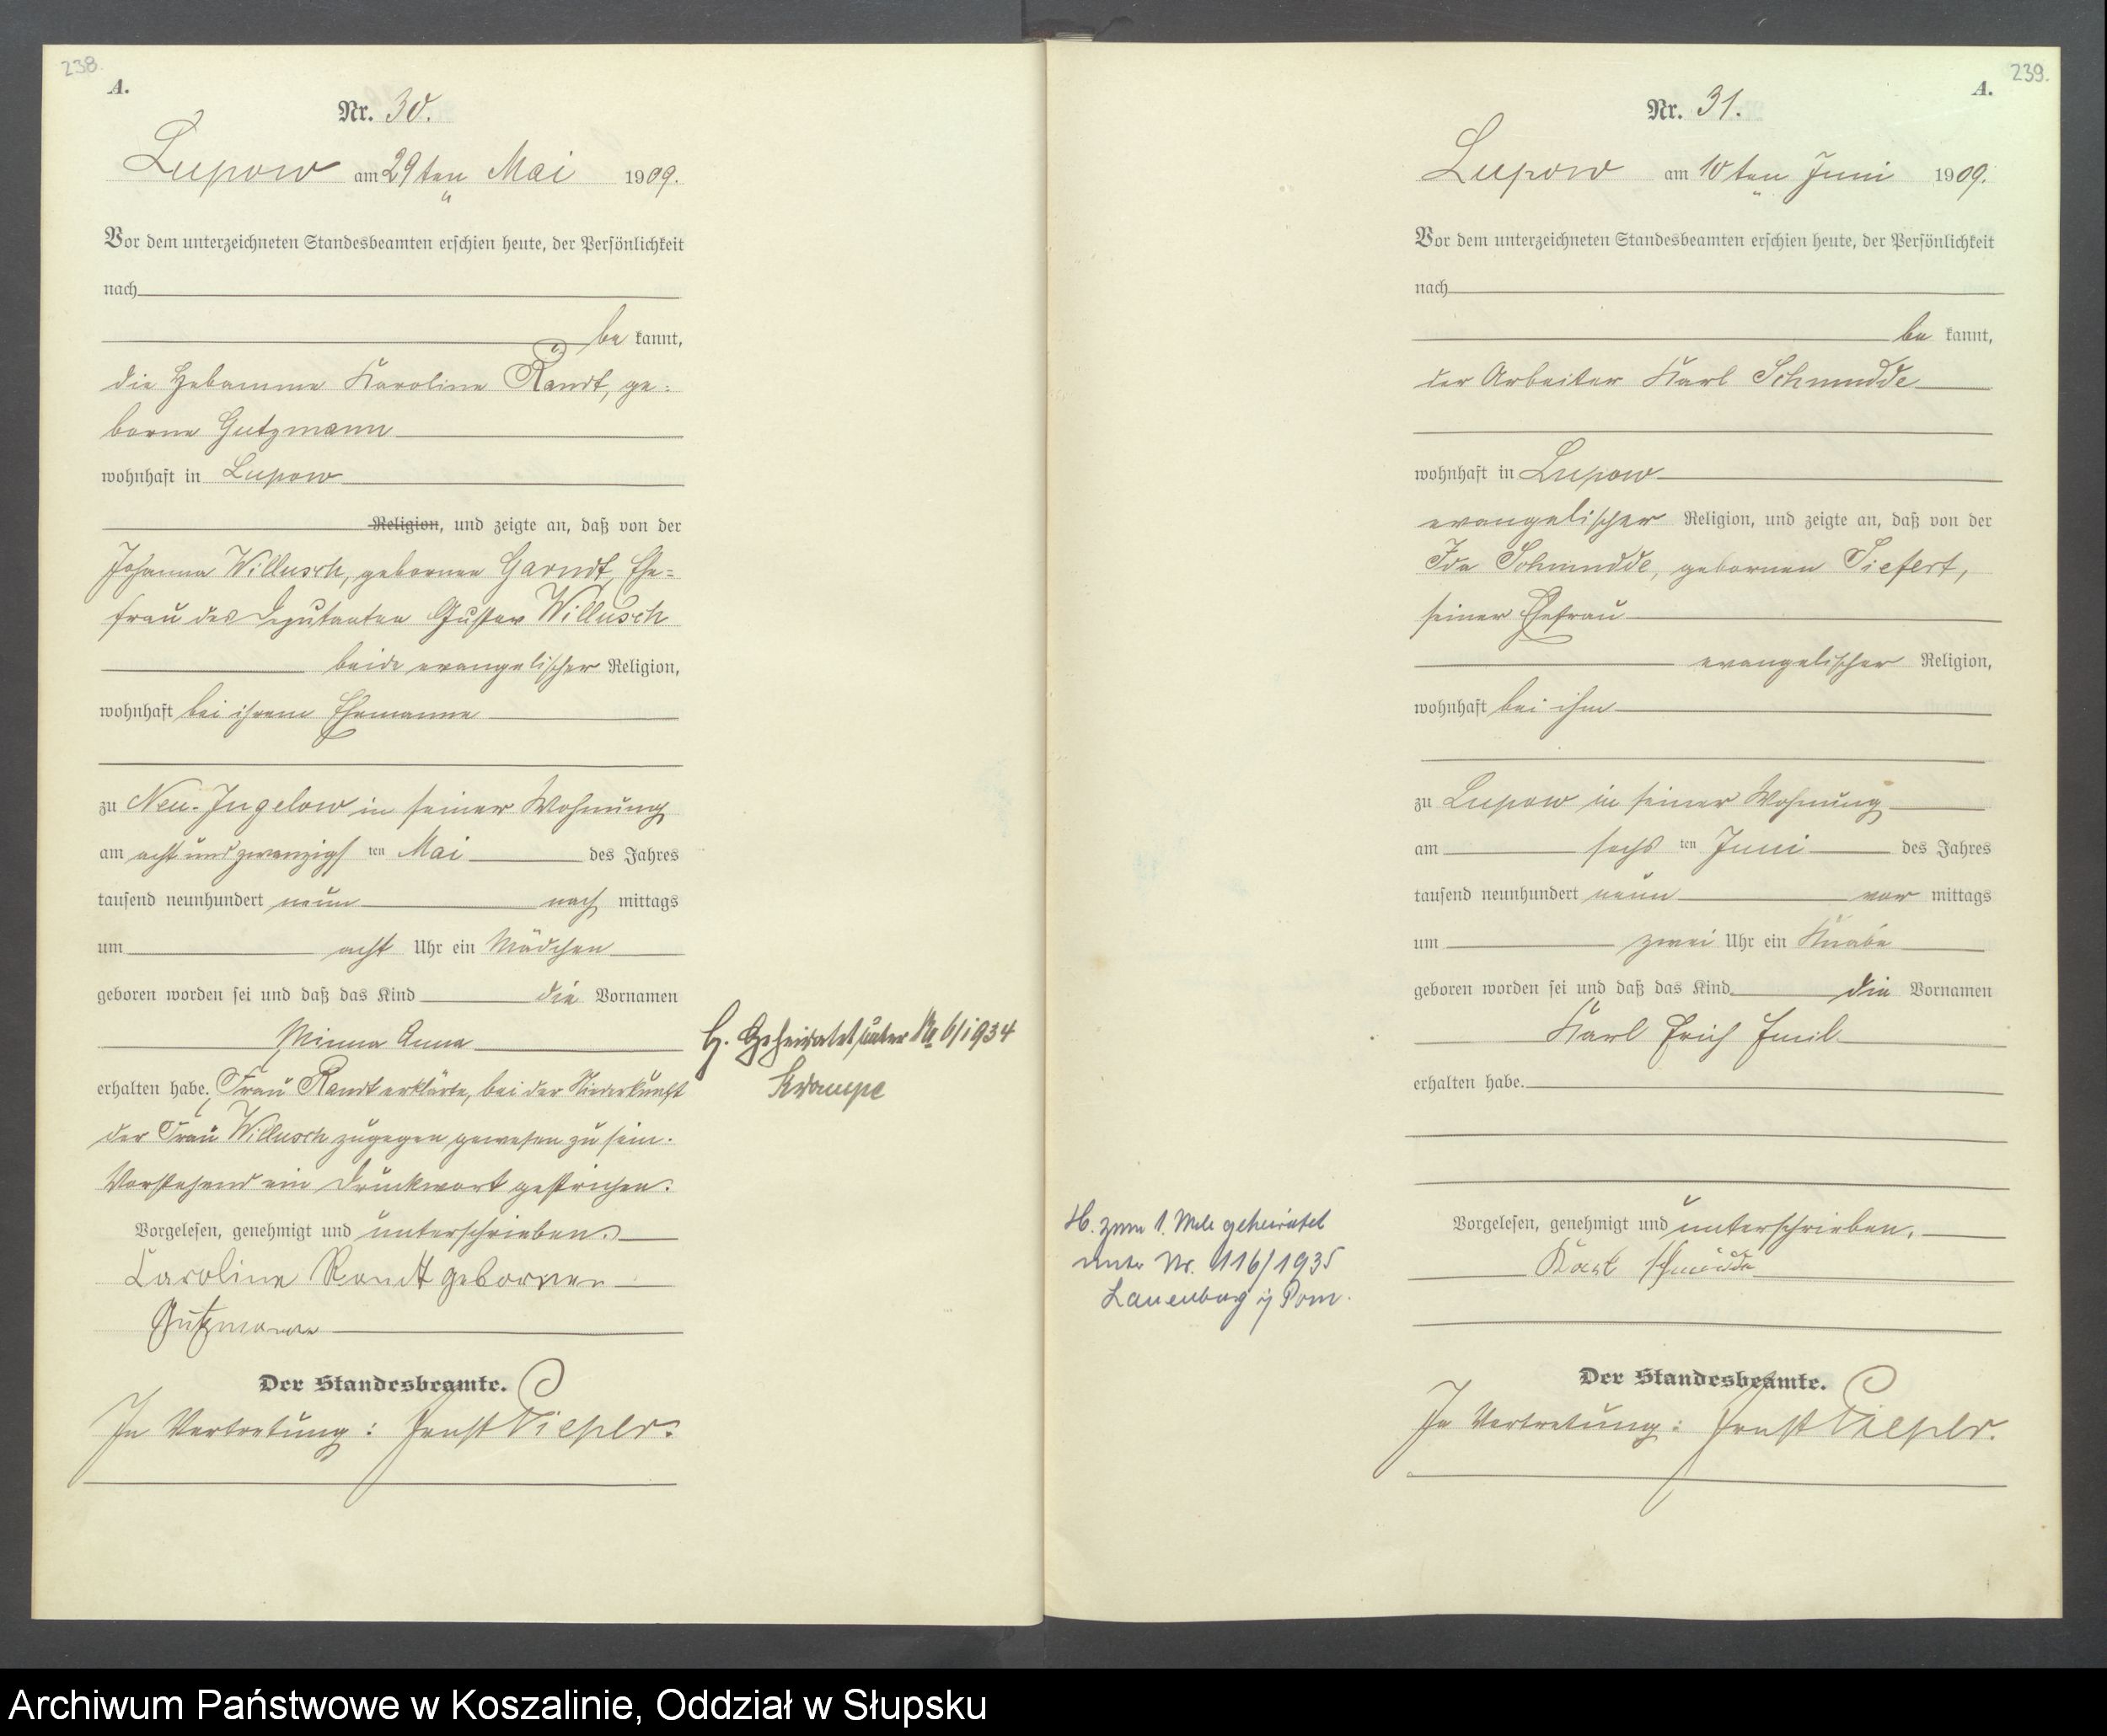 238.
A.
Nr. 30.
Lupow am 29ten Mai 1909.
Vor dem unterzeichneten Standesbeamten erschien heute, der Persönlichkeit
nach
be kannt,
die Hebamme Karoline Randt, ge=
borne Gutzmann
wohnhaft in Lupow
Religion, und zeigte an, daß von der
Johanna Willusch, gebornen Garndt, Ehe=
frau des Deputanten Gustav Willusch
beide evangelischer Religion,
wohnhaft bei ihrem Ehemanne
zu Neu-Jugelow in seiner Wohnung
am acht und zwanzigsten Mai des Jahres
tausend neunhundert neun nach mittags
um acht Uhr ein Mädchen
geboren worden sei und daß das Kind die Vornamen
Minna Anna
erhalten habe. Frau Randt erklärte, bei der Niederkunft
der Frau Willusch zugegen gewesen zu sein.
Vorstehend ein Druckwort gestrichen.
Vorgelesen, genehmigt und unterschrieben.
Caroline Randt geborenen
Gutzmann
Der Standesbeamte.
In Vertretung: Ernst Pieper.
H. Geheiratet unter No 6/1934
Krampe
239.
A.
Nr. 31.
Lupow am 10ten Juni 1909.
Vor dem unterzeichneten Standesbeamten erschien heute, der Persönlichkeit
nach
be kannt,
der Arbeiter Karl Schmudde
wohnhaft in Lupow
evangelischer Religion, und zeigte an, daß von der
Ida Schmudde, gebornen Siefert,
seiner Ehefrau
evangelischer Religion,
wohnhaft bei ihm
zu Lupow in seiner Wohnung
am sechs ten Juni des Jahres
tausend neunhundert neun vor mittags
um zwei Uhr ein Knabe
geboren worden sei und daß das Kind die Vornamen
Karl Erich Emil
erhalten habe.
Vorgelesen, genehmigt und unterschrieben.
Karl Schmudde
Der Standesbeamte.
In Vertretung: Ernst Pieper.
H. zum 1. Male geheiratet
unter Nr. 116/1935
Lauenburg i/ Pom.
Archiwum Państwowe w Koszalinie, Oddział w Słupsku